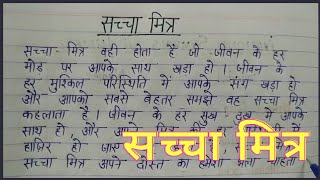 सच्चा मित्र
सच्चा- मित्र वही होता है जो जीवन के हर
मोड़ पर आपके साथ खड़ा हो। जीवन के
हर मुश्किल परिस्थिति में आपके संग खड़ा हो
और आपको सबसे बेहतर समझे वह सच्चा मित्र
कहलाता है। जीवन के हर सुख दुख में आपके
साथ हो, और आपने
हाज़िर हो
सच्चा मित्र अपने दोस्त का हमेशा भला चाहता
सच्चा मित्र